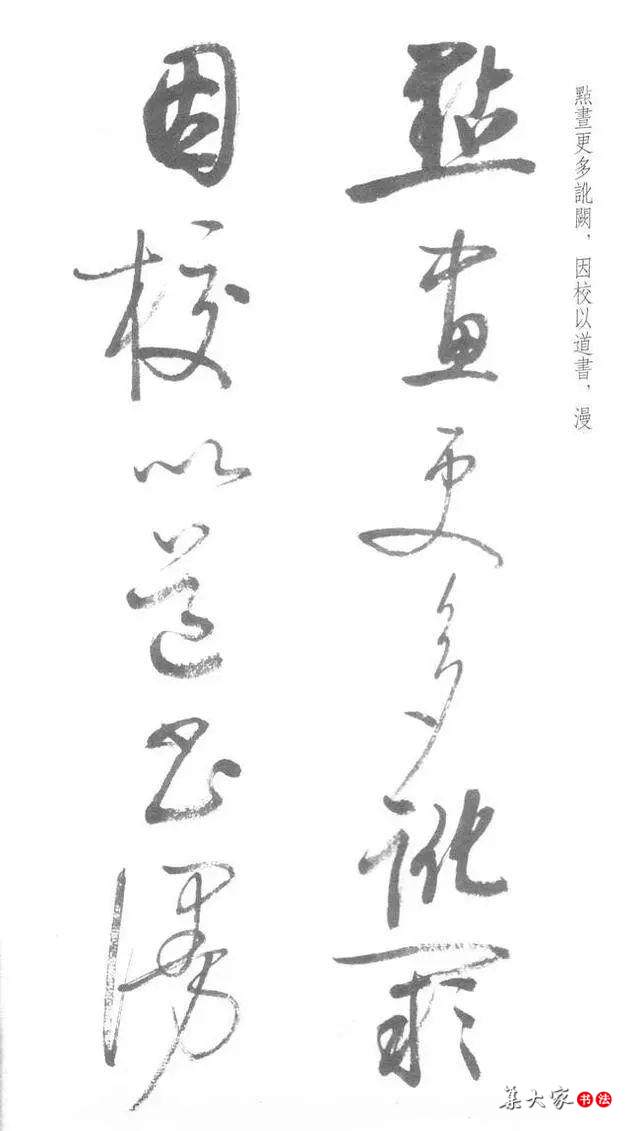 點畫更多訛闕，因校以道書，漫
點畫更多訛闕
因校以道書漫
集大家书法